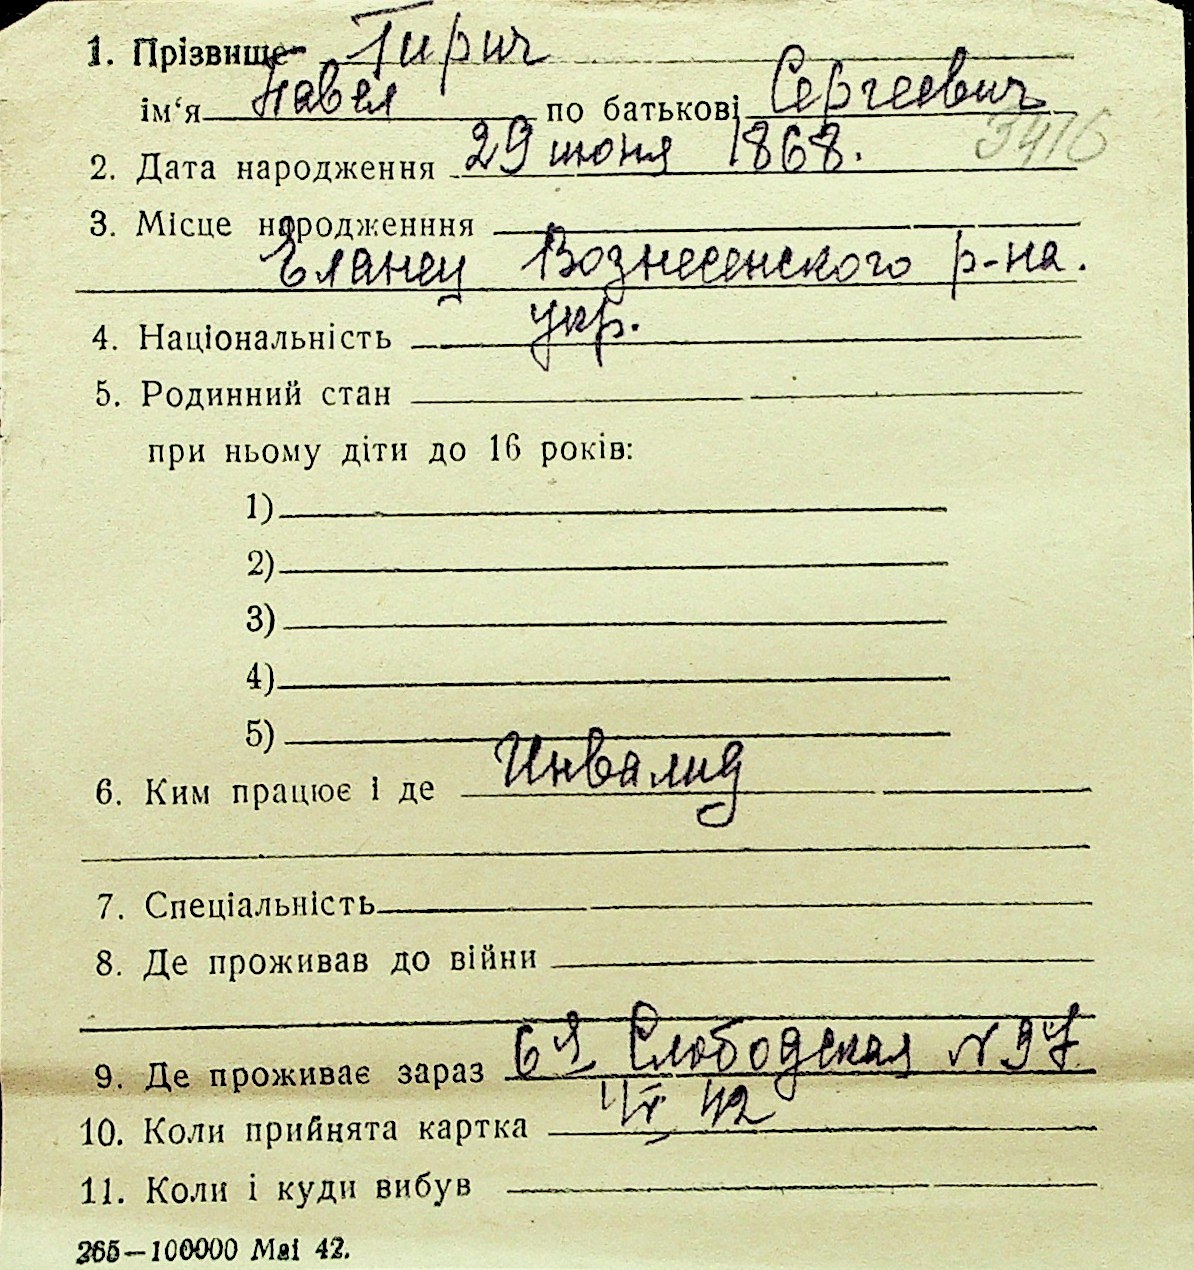 1. Прізвище Гирич
ім‘я Павел по батькові Сергеевич
3416
2. Дата народження 29 июня 1868.
3. Місце народженння
Еланец Вознесенского р-на.
4. Національність укр.
5. Родинний стан
при ньому діти до 16 років:
1)
2)
3)
4)
5)
6. Ким працює і де Инвалид
7. Спеціальність
8. Де проживав до війни
9. Де проживає зараз 6я Слободская №
10. Коли прийнята картка 42
11. Коли і куди вибув
265—100000 Mai 42.